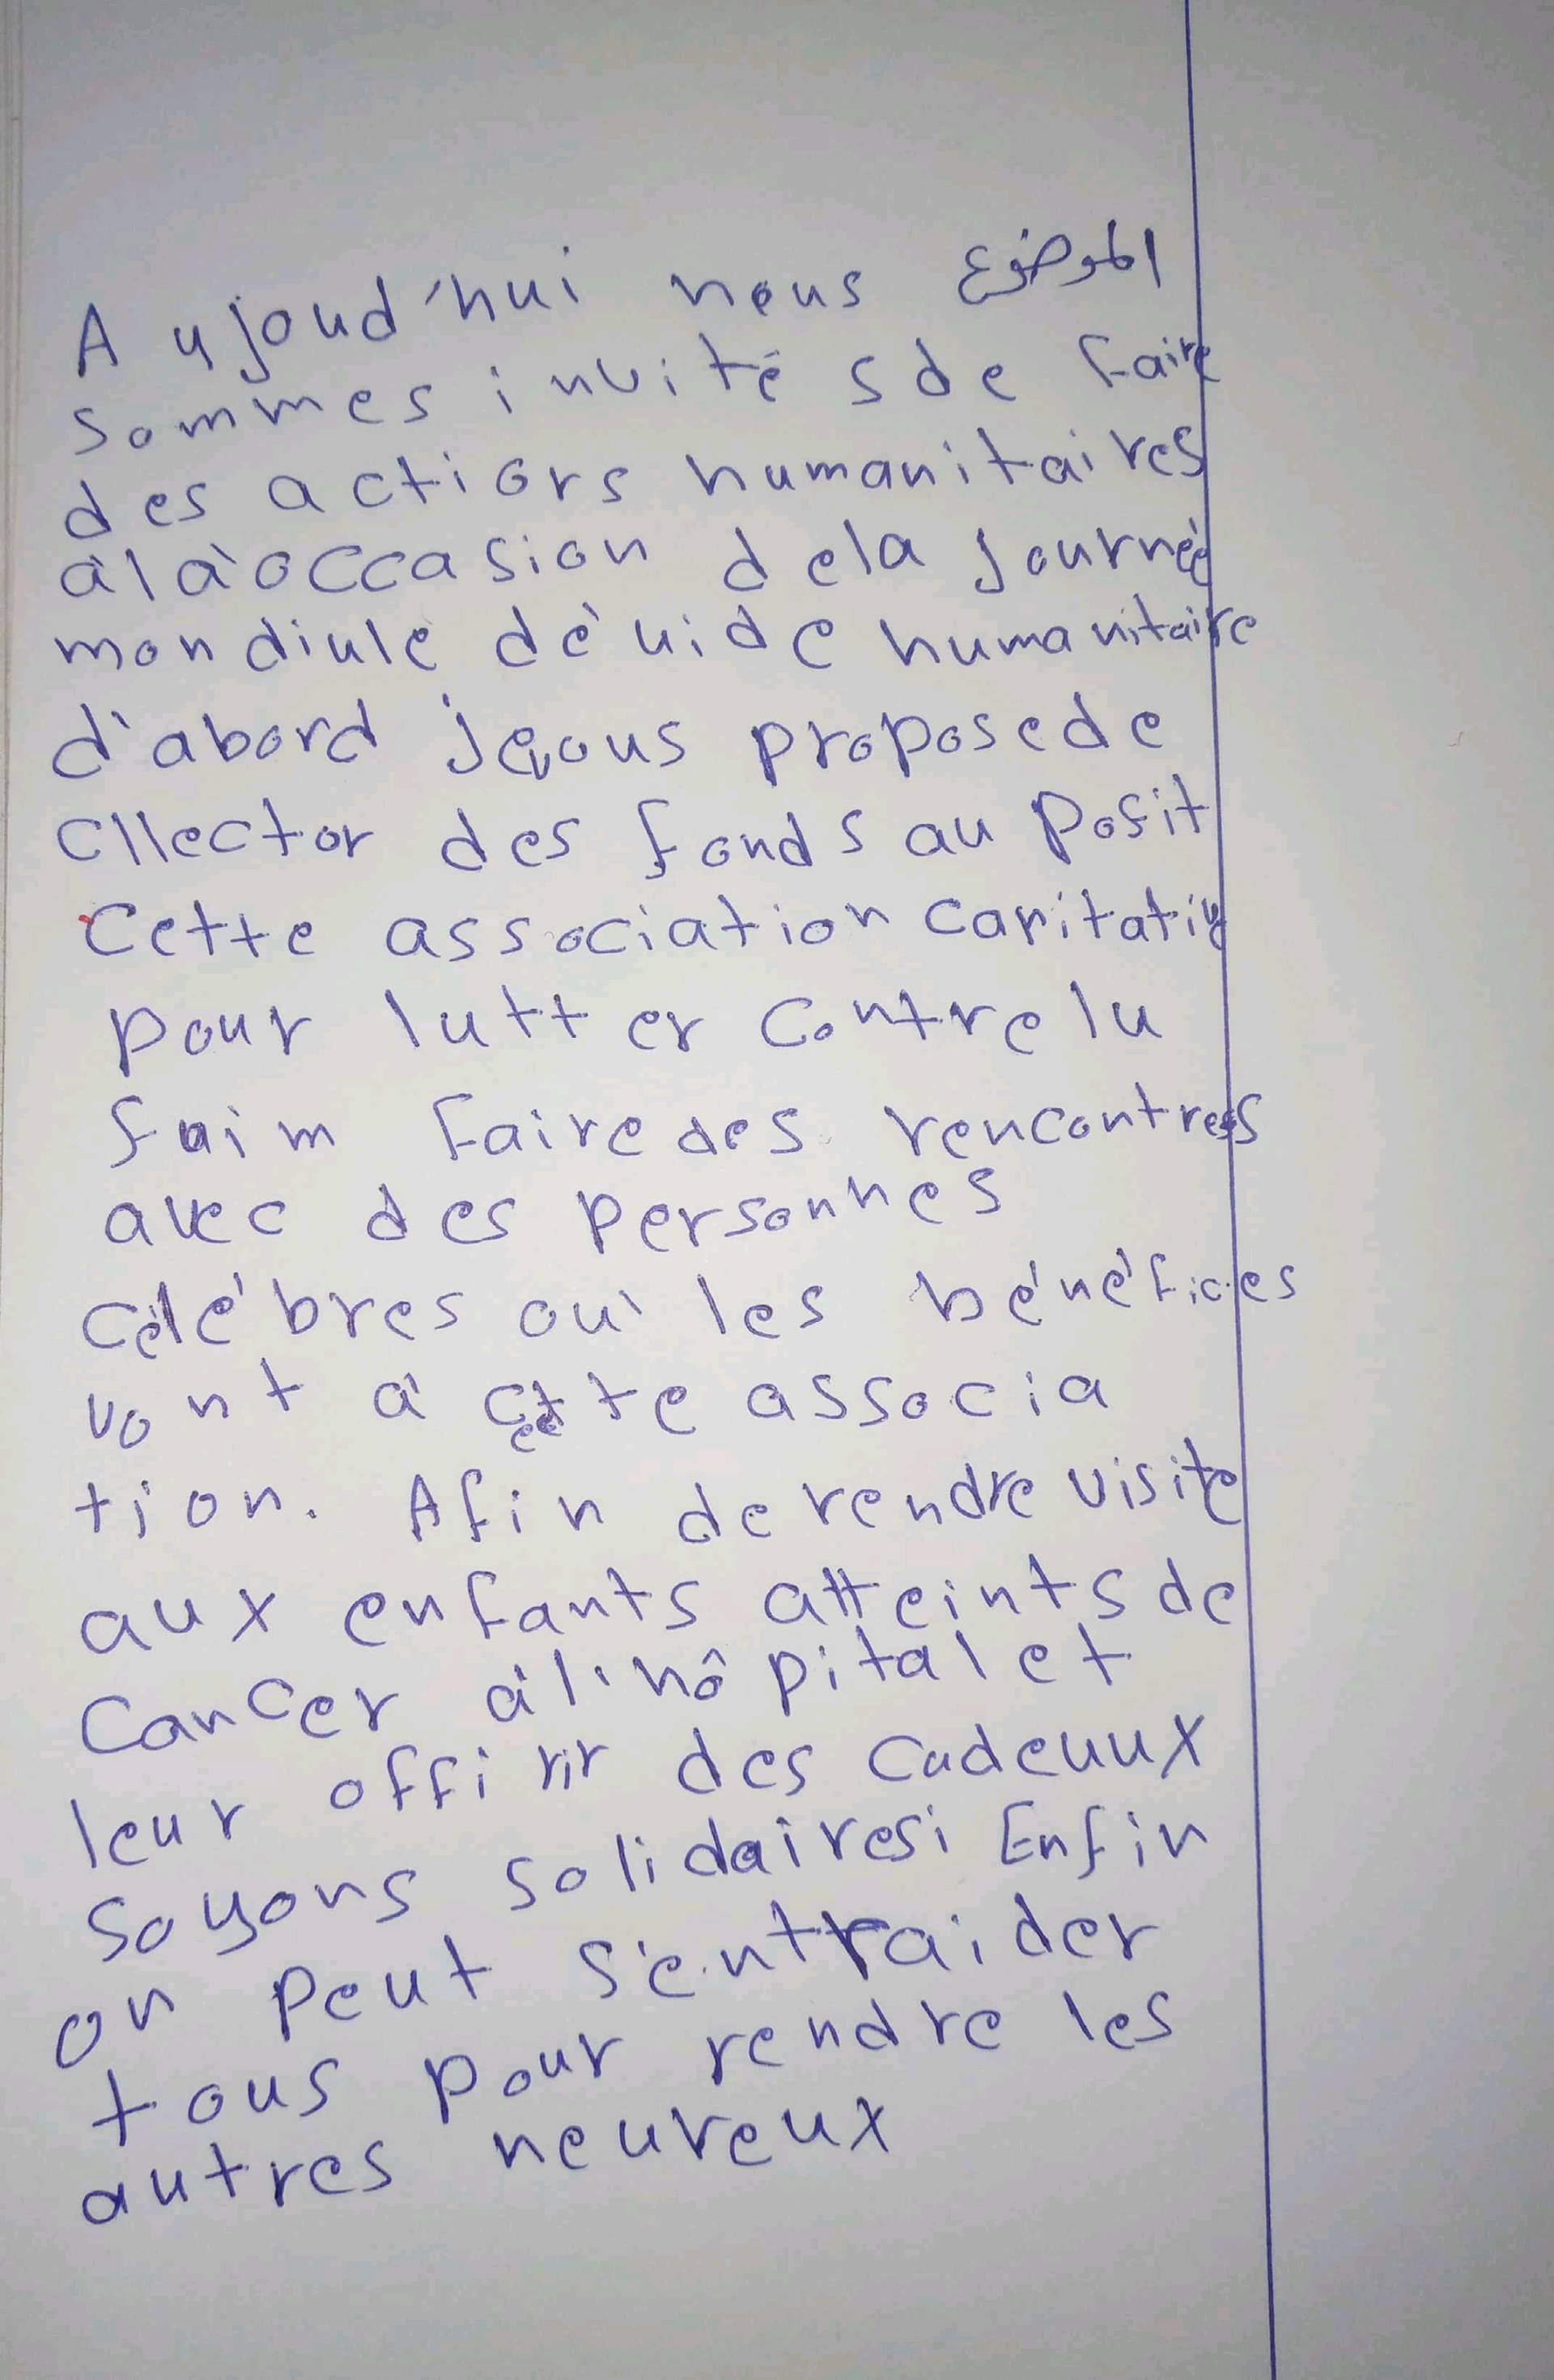 الموضوع
Aujoud'hui nous
sommes invité s de faire
des actions humanitaires
à la occasion de la journée
mondiale de'aide humanitaire
d'abord je vous propose de
cllector des fonds au posit
cette association caritativ
pour lutter contre la
faim faire des rencontres
avec des personnes
célébres où les bénéfices
vont à cette associa
tion. Afin de rendre visite
aux enfants atteints de
cancer à l'hôpital et
leur offirir des cadeaux
soyons solidaires! Enfin
on peut s'entraider
tous pour rendre les
autres heureux